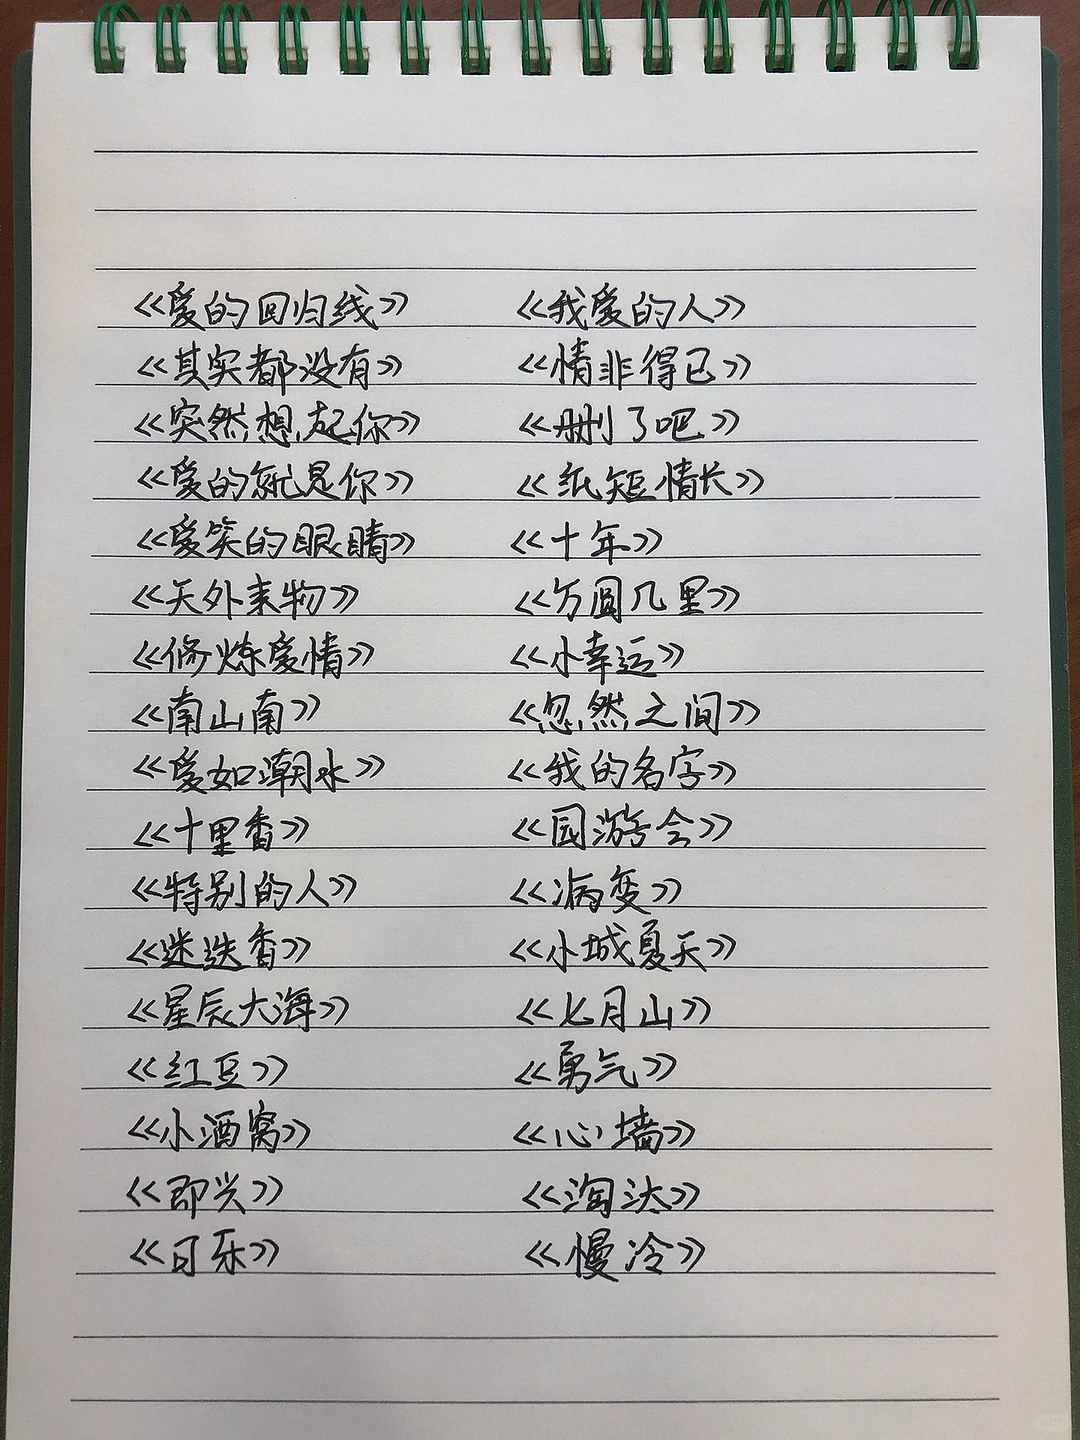 《爱的回归线》 《我爱的人》
《其实都没有》 《情非得已》
《突然想起你》 《删了吧》
《爱的就是你》 《纸短情长》
《爱笑的眼睛》 《十年》
《天外来物》 《方圆几里》
《修炼爱情》 《小幸运》
《南山南》 《忽然之间》
《爱如潮水》 《我的名字》
《十里香》 《园游会》
《特别的人》 《病变》
《迷迭香》 《小城夏天》
《星辰大海》 《七月山》
《红豆》 《勇气》
《小酒窝》 《心墙》
《即兴》 《淘汰》
《可乐》 《慢冷》